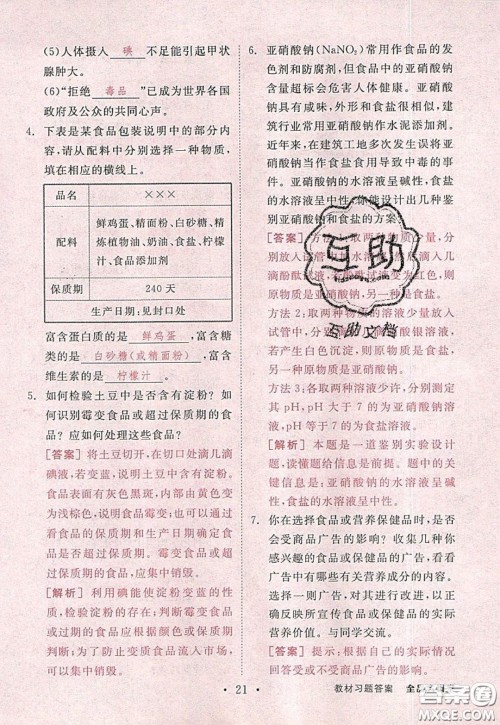 (5)人体摄入 碘 不足能引起甲状
腺肿大。
(6)“拒绝 毒品 ”已成为世界各国
政府及公众的共同心声。
4. 下表是某食品包装说明中的部分内
容,请从配料中分别选择一种物质,
填在相应的横线上。
品名 ×××
配料 鲜鸡蛋、精面粉、白砂糖、精
炼植物油、奶油、食盐、柠檬
汁、食品添加剂
保质期 240 天
生产日期:见封口处
富含蛋白质的是 鲜鸡蛋 ,富含糖
类的是 白砂糖(或精面粉) ,富含
维生素的是 柠檬汁 。
5. 如何检验土豆中是否含有淀粉?如
何识别霉变食品或超过保质期的食
品?应如何处理这些食品?
[答案] 将土豆切开,在切口处滴几滴
碘液,若变蓝,说明土豆中含有淀粉。
食品表面有灰色黑斑,内部由黄色变
为浅棕色,说明食品霉变;也可以根
据食品的保质期和生产日期确定食
品是否超过保质期。霉变食品或超
过保质期的食品,应集中销毁。
[解析] 利用碘能使淀粉变蓝的性
质,检验淀粉的存在;判断霉变食品
或过期的食品应根据颜色或保质期
判断;为了防止变质食品流入市场,
应集中销毁。
6. 亚硝酸钠(NaNO₂)常用作食品的发
色剂和防腐剂,但食品中的亚硝酸钠
含量超标会危害人体健康。亚硝酸
钠具有咸味,外形和食盐很相似,在
建筑行业常用亚硝酸钠作水泥添加剂。
近年来,在建筑工地多次发生误将亚
硝酸钠当作食盐食用导致中毒的事
件。亚硝酸钠的水溶液呈碱性,食盐
的水溶液呈中性。你能设计出几种鉴
别亚硝酸钠和食盐的方案?
[答案] 方法1:取两种物质少量,分
别放入试管中
几
滴酚酞试液,
红色,则
原物质是亚硝酸钠,另一种是食盐。
方法2:取两种物质的溶液少量放入
试管中,分别
酸银溶液,
若产生白色沉淀,则原物质是食盐,
另一种是亚硝酸钠。
方法3:各取两种溶液少许,分别测
其pH,pH大于7的为亚硝酸钠,pH
等于7的为食盐。
[解析] 本题是一道鉴别实验设计
题,读懂题给信息是前提。根据题中
的信息可知,亚硝酸钠的水溶液呈碱
性,食盐的水溶液呈中性。
7. 你在选择食品或营养保健品时,是否
会受商品广告的影响?收集几种你
感兴趣的食品或保健品的广告,看看
其中哪些有关营养成分的内容是不
正确的,对其进行改进,以正确反映
所宣传食品或保健品的实际
营养价值。
[答案] 提示:根据自己的实际情况
回答受或不受商品广告的影响。
互助
互助文档
21
教材习题答案